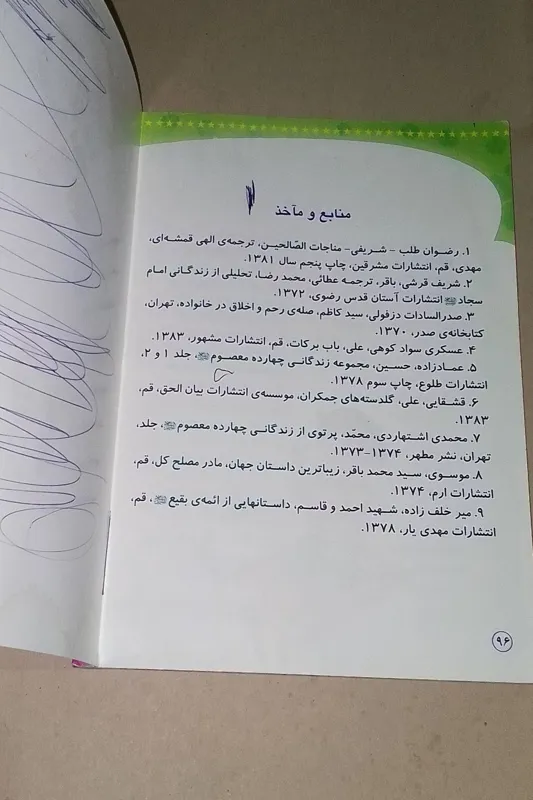 منابع و مآخذ
۱. رضوان طلب – شریفی– مناجات الصّالحین، ترجمه‌ی الهی قمشه‌ای،
مهدی، قم، انتشارات مشرقین، چاپ پنجم سال ۱۳۸۱.
۲. شریف قرشی، باقر، ترجمه عطائی، محمد رضا، تحلیلی از زندگانی امام
سجاد انتشارات آستان قدس رضوی، ۱۳۷۲.
۳. صدرالسادات دزفولی، سید کاظم، صله‌ی رحم و اخلاق در خانواده، تهران،
کتابخانه‌ی صدر، ۱۳۷۰.
۴. عسکری سواد کوهی، علی، باب برکات، قم، انتشارات مشهور، ۱۳۸۳.
۵. عمادزاده، حسین، مجموعه زندگانی چهارده معصوم، جلد ۱ و ۲،
انتشارات طلوع، چاپ سوم ۱۳۷۸.
۶. قشقایی، علی، گلدسته‌های جمکران، موسسه‌ی انتشارات بیان الحق، قم،
۱۳۸۳.
۷. محمدی اشتهاردی، محمّد، پرتوی از زندگانی چهارده معصوم، جلد،
تهران، نشر مطهر، ۱۳۷۴-۱۳۷۳.
۸. موسوی، سید محمد باقر، زیباترین داستان جهان، مادر مصلح کل، قم،
انتشارات ارم، ۱۳۷۴.
۹. میر خلف زاده، شهید احمد و قاسم، داستانهایی از ائمه‌ی بقیع، قم،
انتشارات مهدی یار، ۱۳۷۸.
۹۶